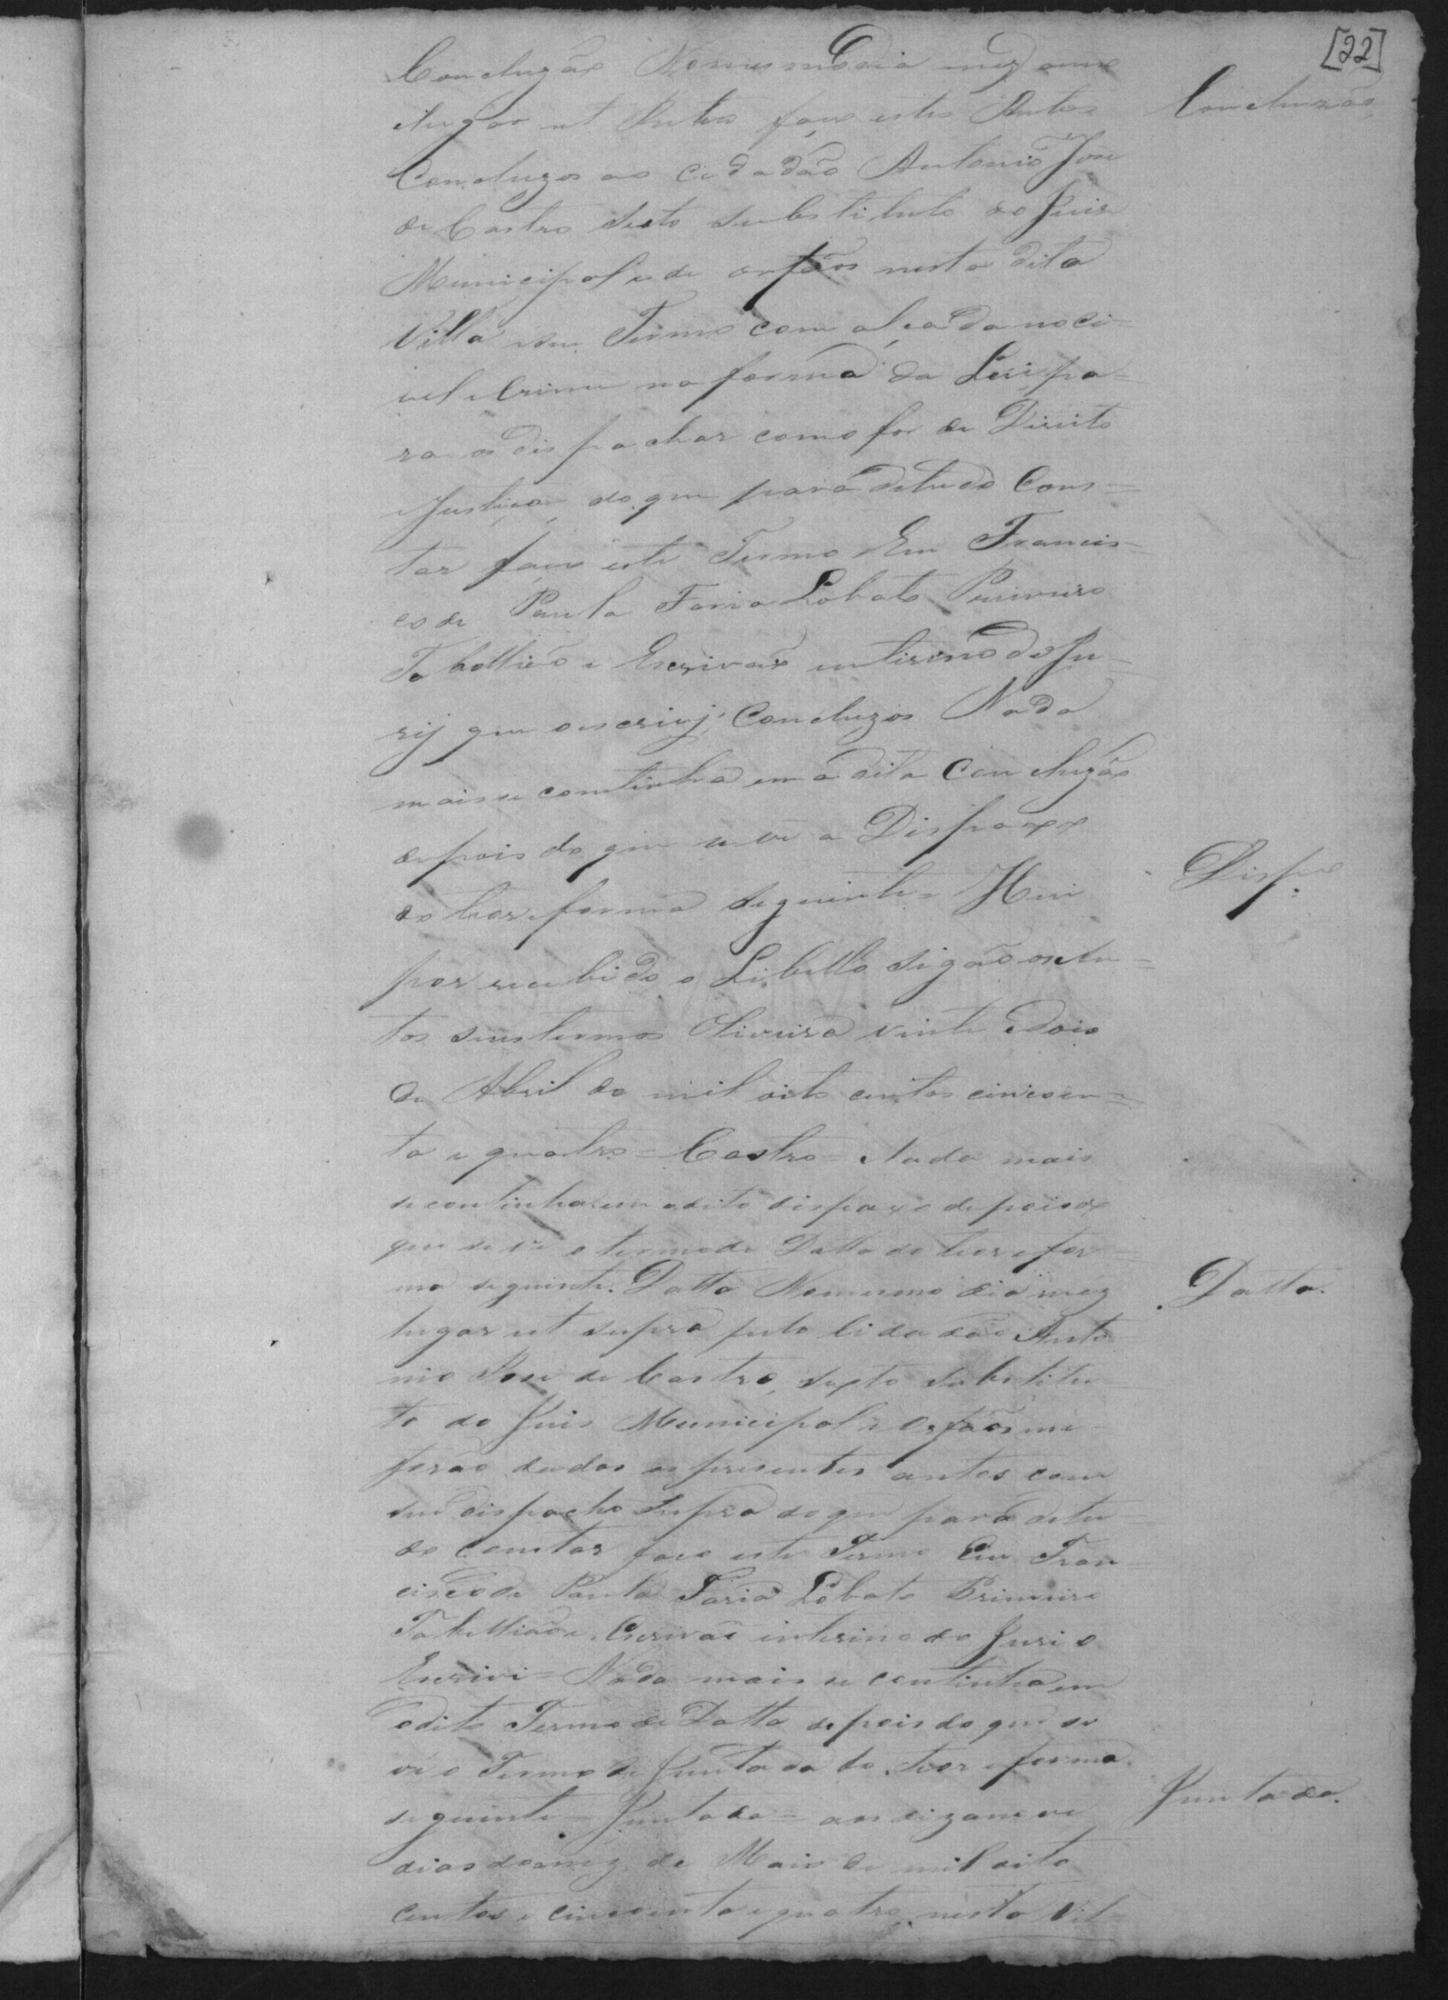 [22]
Concluzão Nomesmo dia mez anno
elugar ut Retro faço estes Autos
Concluzão
Concluzos ao cidadão Antonio Jose
de Castro sexto substituto do Juis
Municipal e de orfãos nesta dita
Villa e seu Termo com alçada no ci-
vel e Crime na forma da Lei pa-
ra os dispachar como for de Direito
e Justiça do que para detudo Cons-
tar faço este Termo Eu Francis-
co de Paula Faria Lobato Primeiro
Tabellião e Escrivão enterino do Ju-
rij que oescrivj; Concluzos Nada
mais se continha em a dita Concluzão
depois do que se ve o Dispaxo
do theor e forma seguinte = Hei
Dispo.
por recebido o Libello sigão os Au-
tos seus termos Oliveira vinte e Dois
de Abril de mil oito centos cincoen-
ta e quatro = Castro = Nada mais
se continha em odito dispaxo depois do
que se ve o termo de Datta do theor e for-
ma seguinte. Datta Nomesmo dia mez
Datta.
lugar ut supra pelo Cidadão Anto
nio Jose de Castro, sexto substitu
to do Juis Municipal e Orfãos me
forão dados os presentes autos com
seu dispacho supra do que para detu
do constar faço este Termo Eu Fran
cisco de Paula Faria Lobato Primeiro
Tabellião e Escrivão interino do Juri o
Escrivi = Nada mais se continha em
odito Termo de Datta depois do que se
ve o Termo de Juntada do theor e forma
seguinte = Juntada = aos dezanove
Juntada.
dias do mez de Maio de mil oito
centos e cincoenta e quatro nesta Vil-